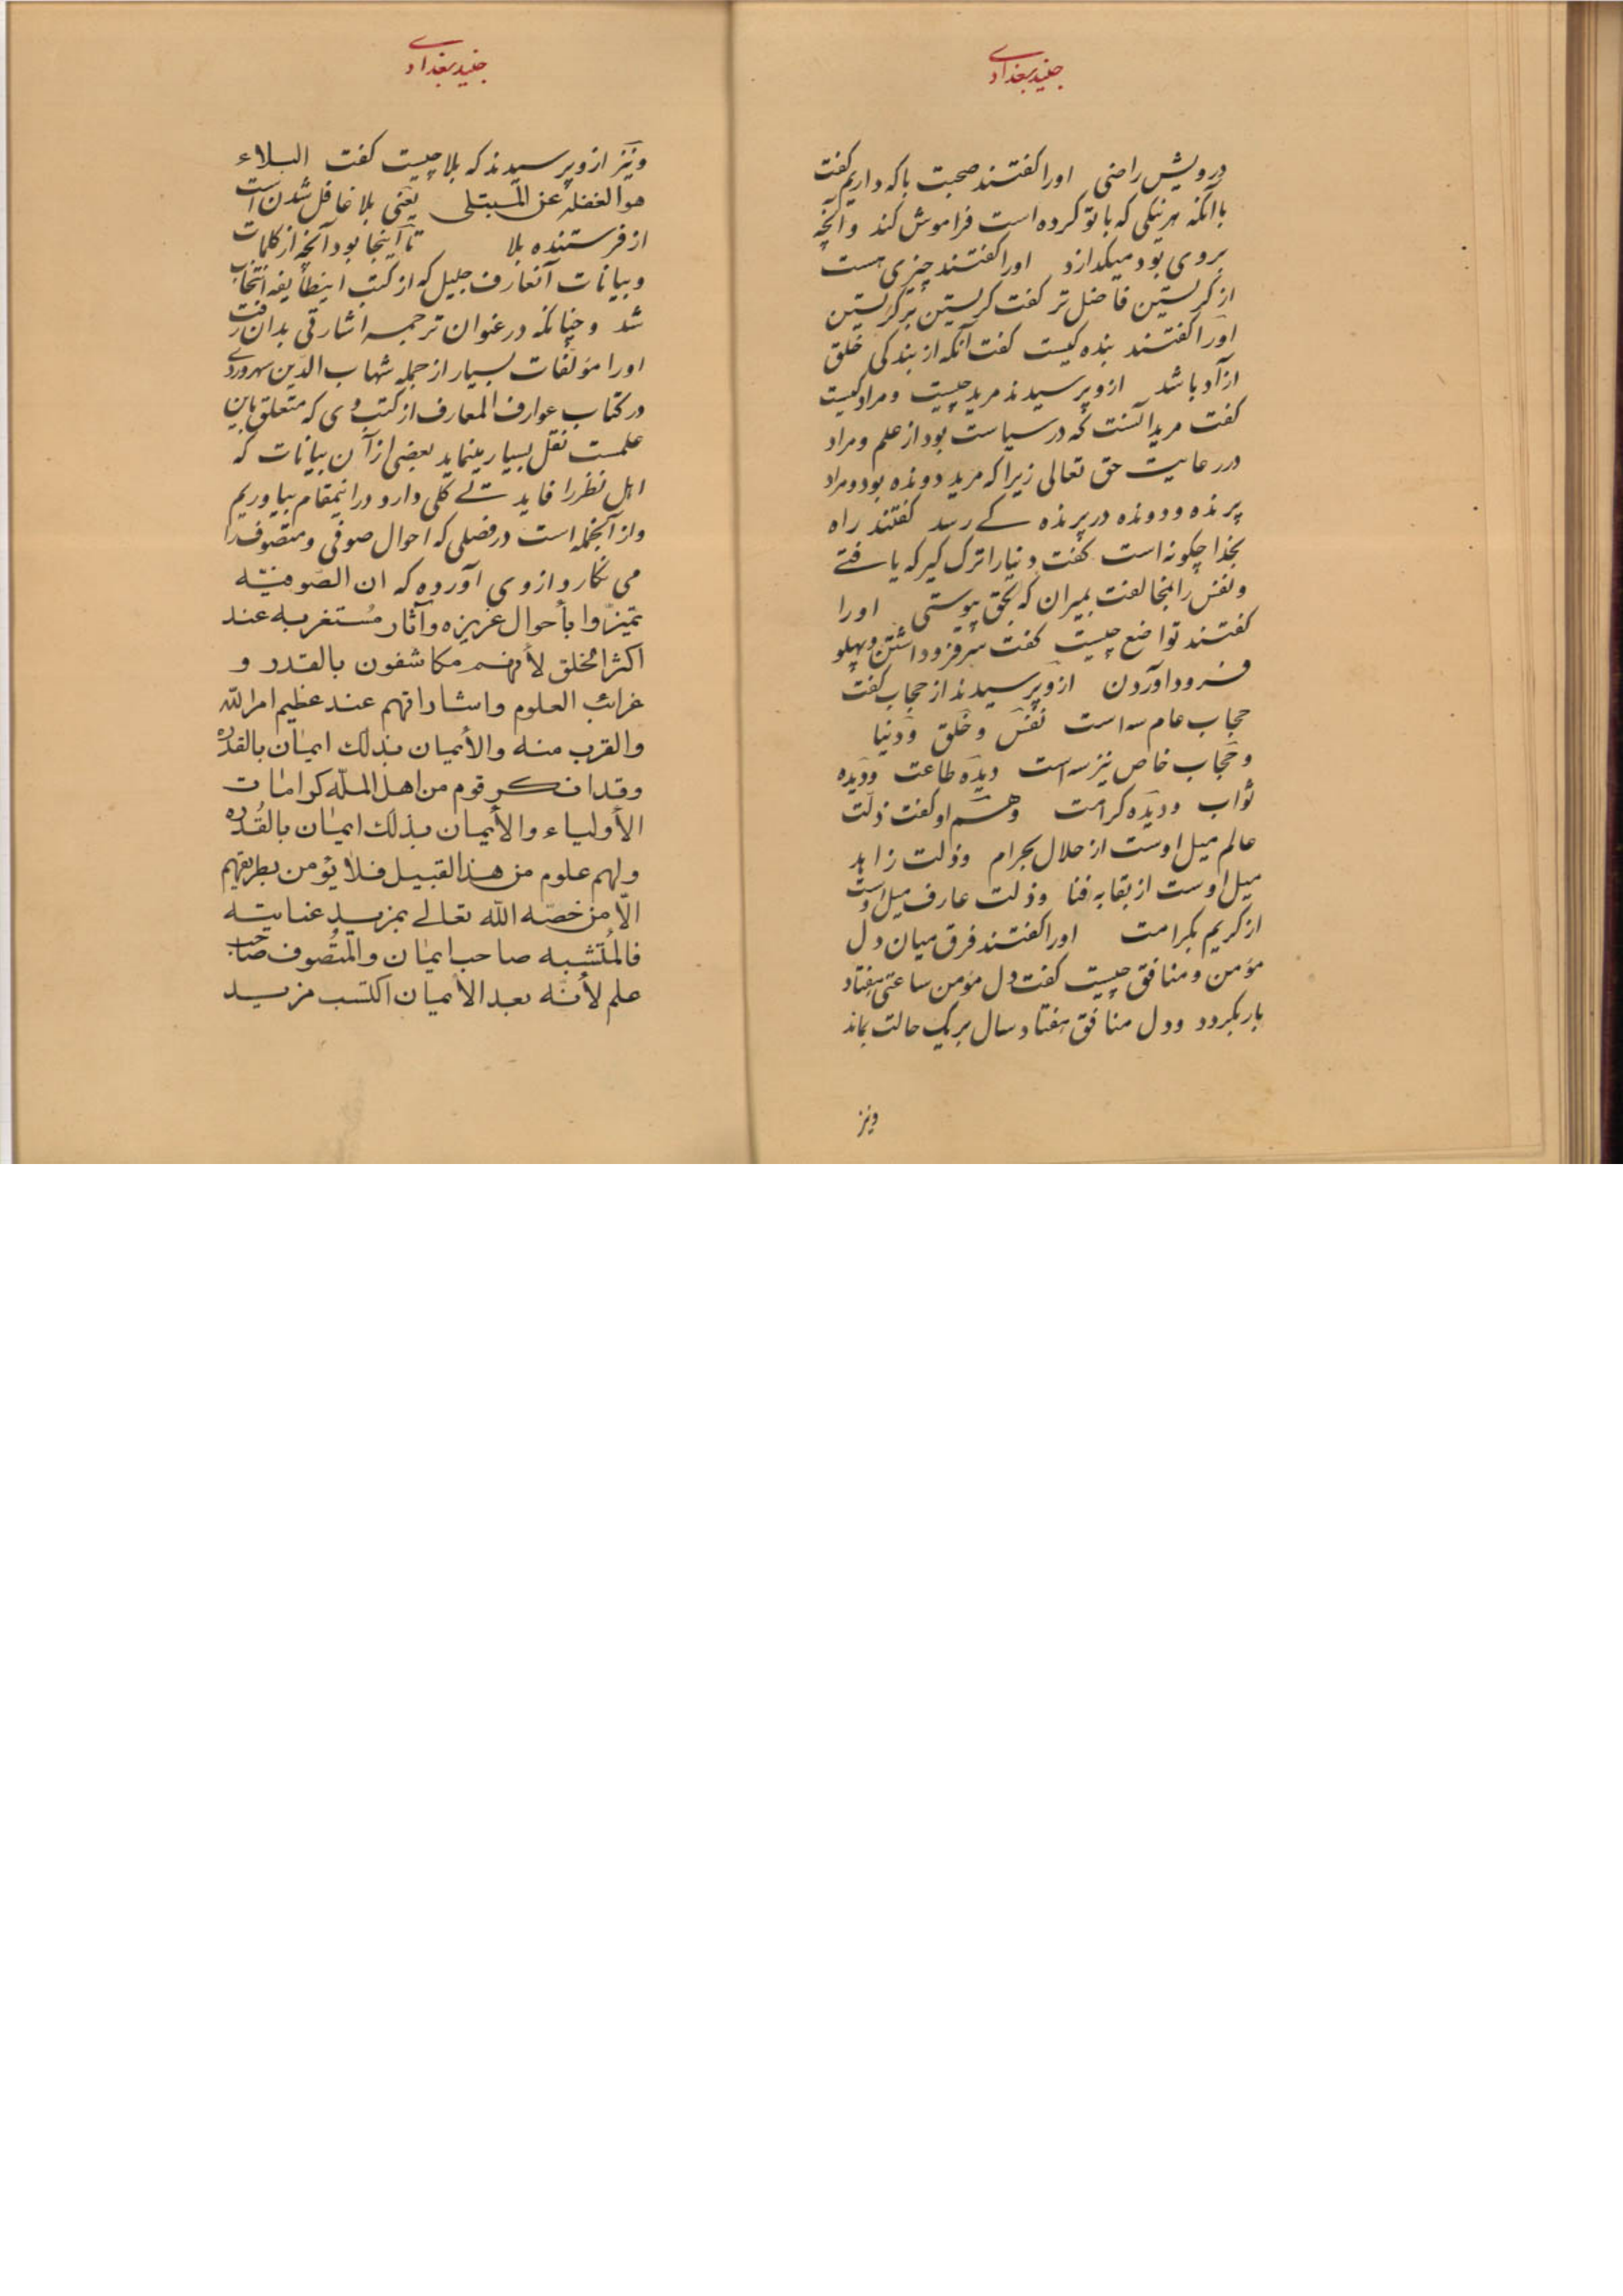 جنید بغدادی
درویش راضی اورا کفتند صحبت باکه داریم کفت
باآنکه هرنیکی که باتو کرده است فراموش کند و آنچه
بروی بود میکذارد اورا کفتند چیزی هست
از کریستن فاضل تر کفت کریستن بر کریستن
اورا کفتند بنده کیست کفت آنکه از بندکی خلق
ازآد باشد ازو پرسیدند مرید چیست و مراد کیست
کفت مرید آنست که در سیاست بود از علم و مراد
در رعایت حق تعالی زیرا که مرید دونده بود و مراد
پرنده و دونده در پرنده کے رسد کفتند راه
بخدا چکونه است کفت دنیارا ترک کیر که یافتے
و نفس را مخالفت بمیران که بحق پیوستی اورا
کفتند تواضع چیست کفت سرفرود داشتن و پهلو
فرود آوردن ازو پرسیدند از حجاب کفت
حجاب عام سه است نفس و خلق و دنیا
و حجاب خاص نیز سه است دیده طاعت و دیده
ثواب و دیده کرامت و هم او کفت ذلت
عالم میل اوست از حلال بحرام و ذلت زاهد
میل اوست از بقا به فنا و ذلت عارف میل اوست
از کریم بکرامت اورا کفتند فرق میان دل
مؤمن و منافق چیست کفت دل مؤمن ساعتی هفتاد
بار بکردد و دل منافق هفتاد سال بر یک حالت بماند
و نیز
جنید بغدادی
و نیز ازو پرسیدند که بلا چیست کفت البلاء
هو الغفله عن المبتلی یعنی بلا غافل شدن است
از فرستنده بلا تا اینجا بود آنچه از کلمات
و بیانات آنعارف جلیل که از کتب اینطایفه انتخاب
شد و چنانکه در عنوان ترجمه اشارتی بدان رفت
اورا مؤلفات بسیار از جمله شهاب الدین سهروردی
در کتاب عوارف المعارف از کتب وی که متعلق باین
علمست نقل بسیار مینماید بعضی از آن بیانات که
اهل نظر را فایدتے کلی دارد در اینمقام بیاوریم
و از آنجمله است در فصلی که احوال صوفی و متصوف را
می نکارد از وی آورده که ان الصوفیّه
تمیّزوا بأحوال عزیزه و آثار مُستغربه عند
اکثر الخلق لأنهم مکاشفون بالقدر و
غرائب العلوم و اشاراتهم عند عظیم امر الله
والقرب منه والأیمان بذلك ایمان بالقدره
وقد انکر قوم من اهل الملّه کرامات
الأولیاء والأیمان بذلك ایمان بالقُدره
ولهم علوم من هذا القبیل فلا یؤمن بطریقهم
الّا من خصّه الله تعالے بمزید عنایته
فالمُتشبه صاحب ایمان والمتصوف صاحب
علم لأنّه بعد الأیمان اکتسب مزید